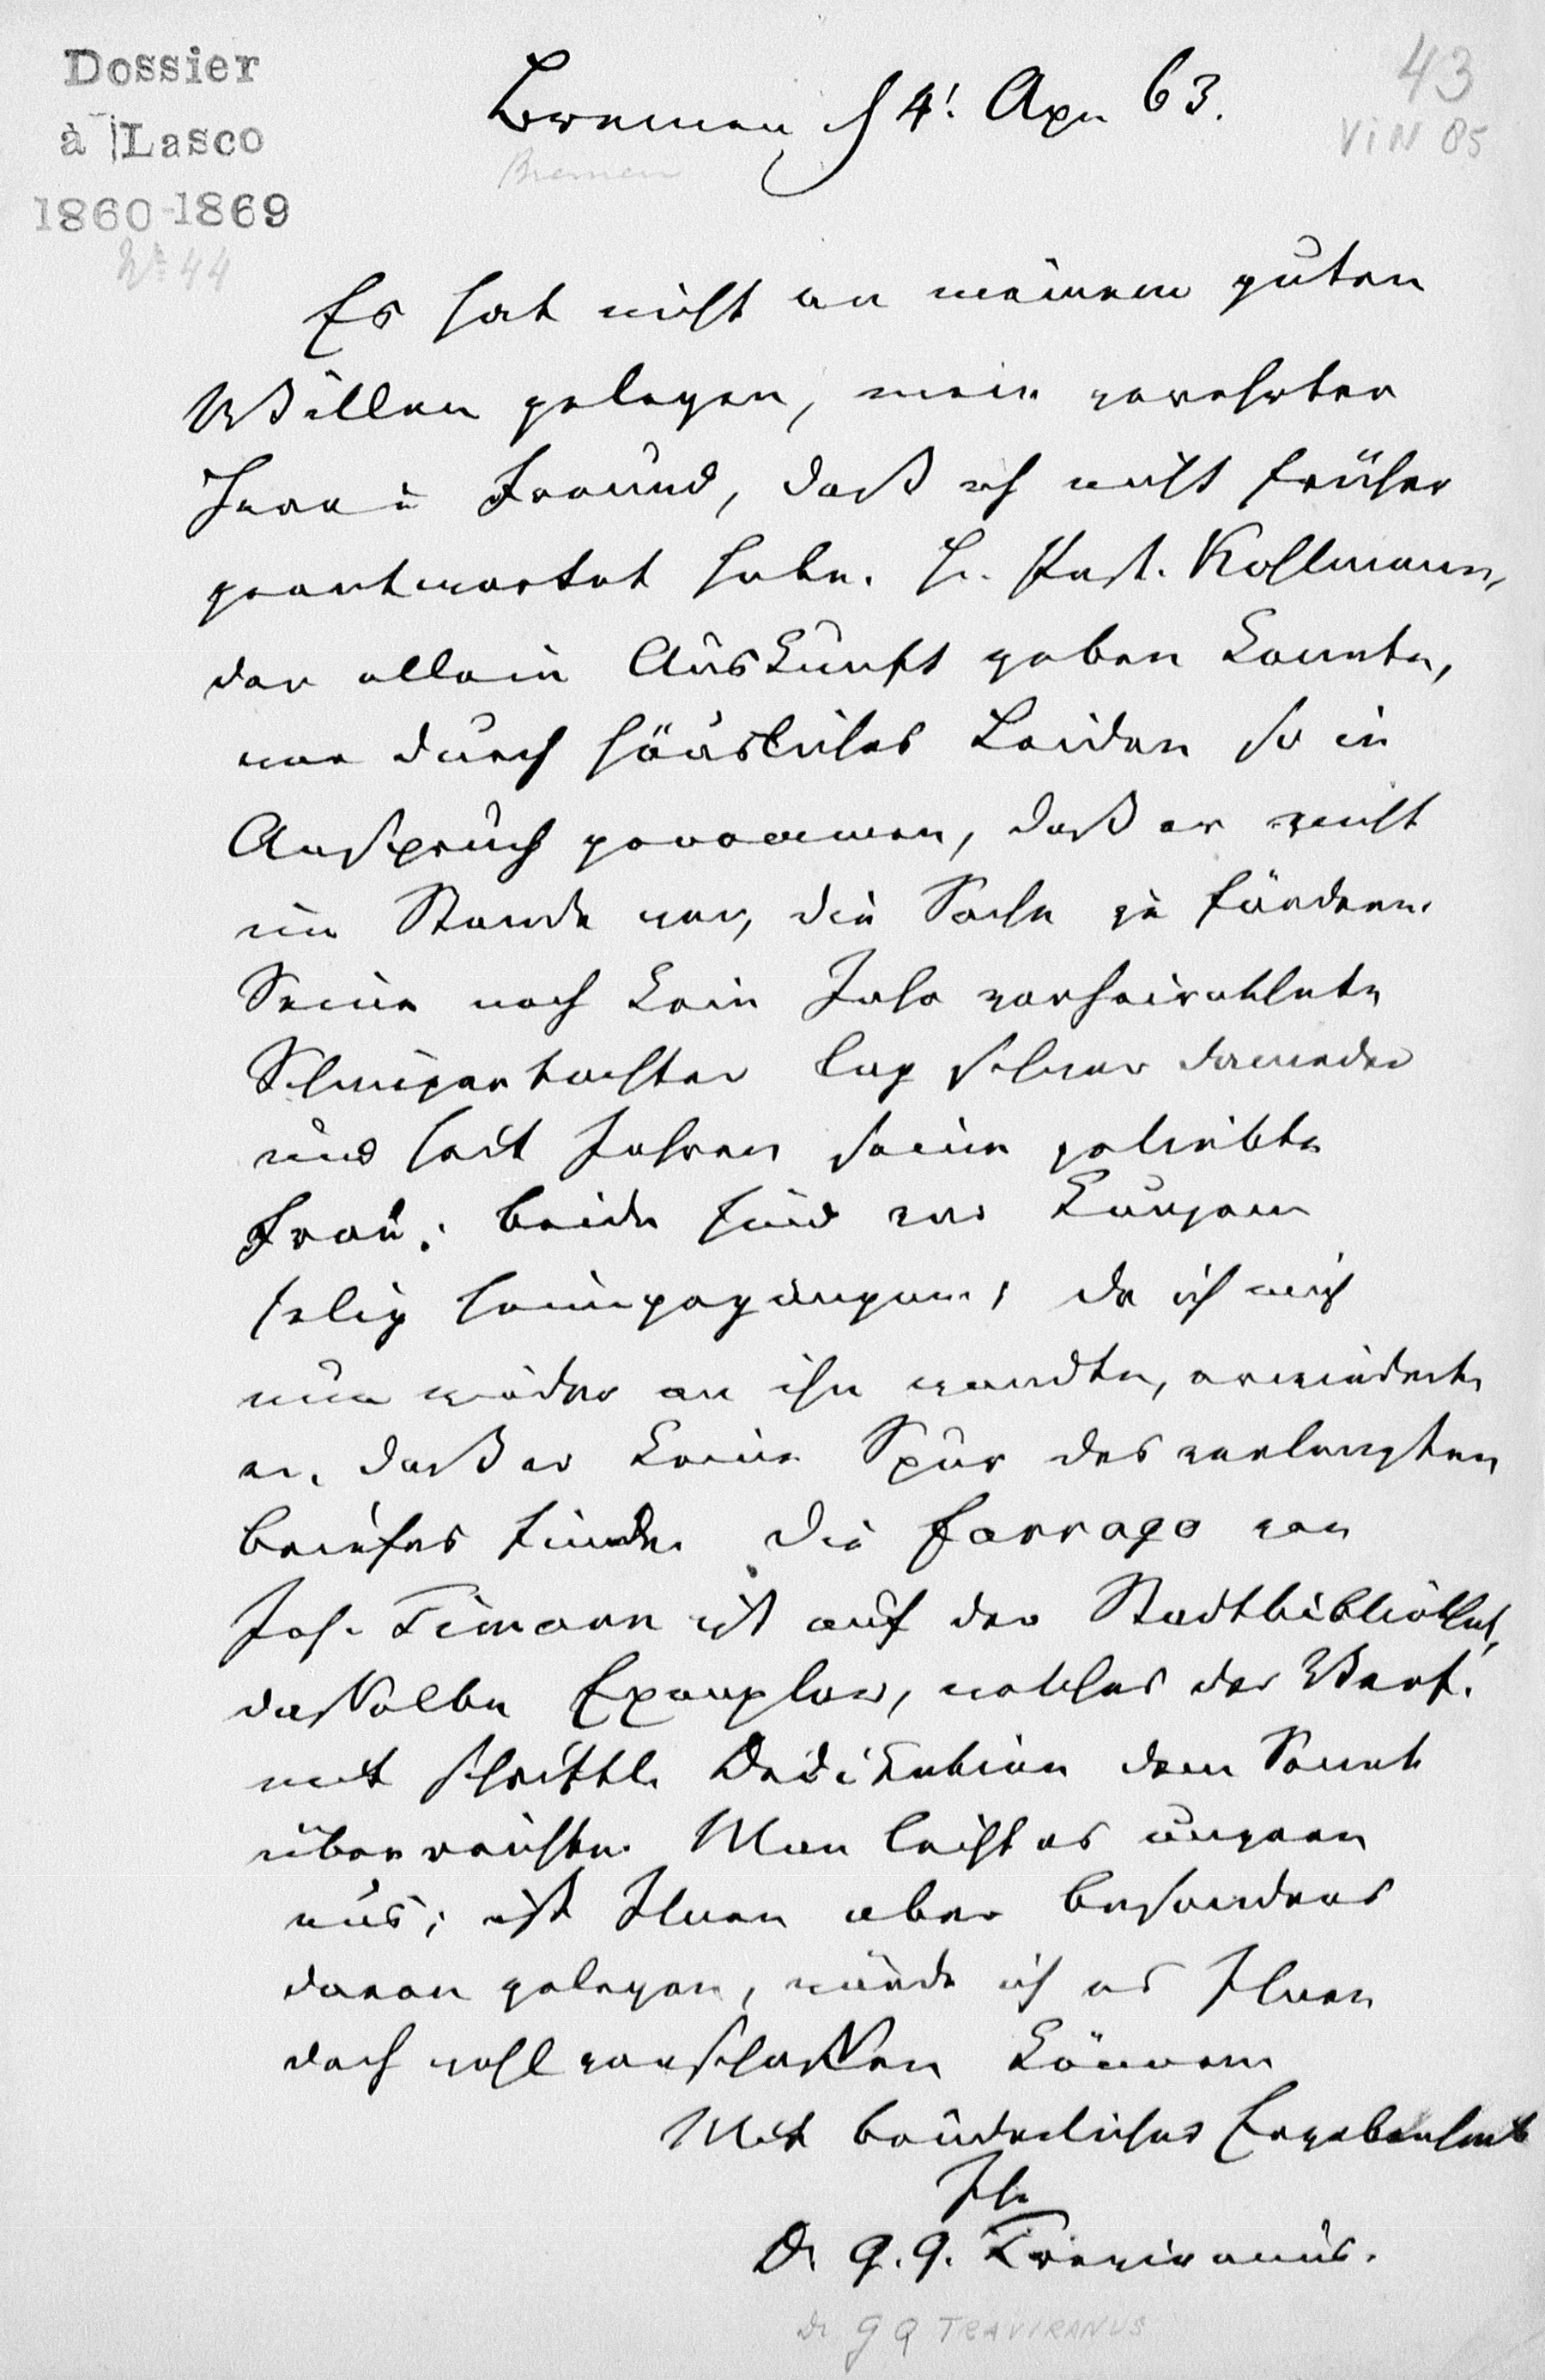 Dossier
à Lasco
1860-1869
No 44
43
VIN 85
Bremen d 4! Apr 63.
Bremen
Es hat nicht an meinem guten
Willen gelegen, mein verehrter
Herr u Freund, daß ich nicht früher
geantwortet habe. H. Past. Kohlmann,
der allein Auskunft geben konnte,
war durch häusliches Leiden so in
Anspruch genommen, daß er nicht
im Stande war, die Sache zu fördern.
Seine noch kein Jahr verheirathete
Schwiegertochter lag schwer darnieder
und seit Jahren seine geliebte
Frau; beide sind vor Kurzem
selig heimgegangen; da ich mich
nun wieder an ihn wandte, erwiederte
er, daß er keine Spur des verlangten
Briefes finde. Die Farrago von
Joh. Timann ist auf der Stadtbibliothek,
dasselbe Exemplar, welches der Verf.
mit schriftl. Dedikation dem Senat
überreichte. Man leiht es ungern
aus; ist Ihnen aber besonders
daran gelegen, würde ich es Ihnen
doch wohl verschaffen können
Mit brüderlicher Ergebenheit
Ihr
Dr G. G. Treviranus.
Dr G G TRAVIRANUS